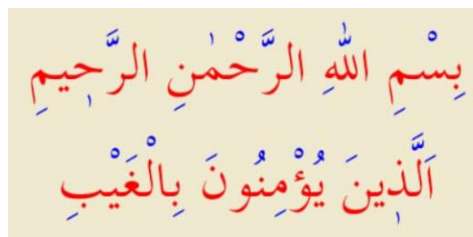 بِسْمِ اللّٰهِ الرَّحْمٰنِ الرَّحٖيمِ
اَلَّذٖينَ يُؤْمِنُونَ بِالْغَيْبِ